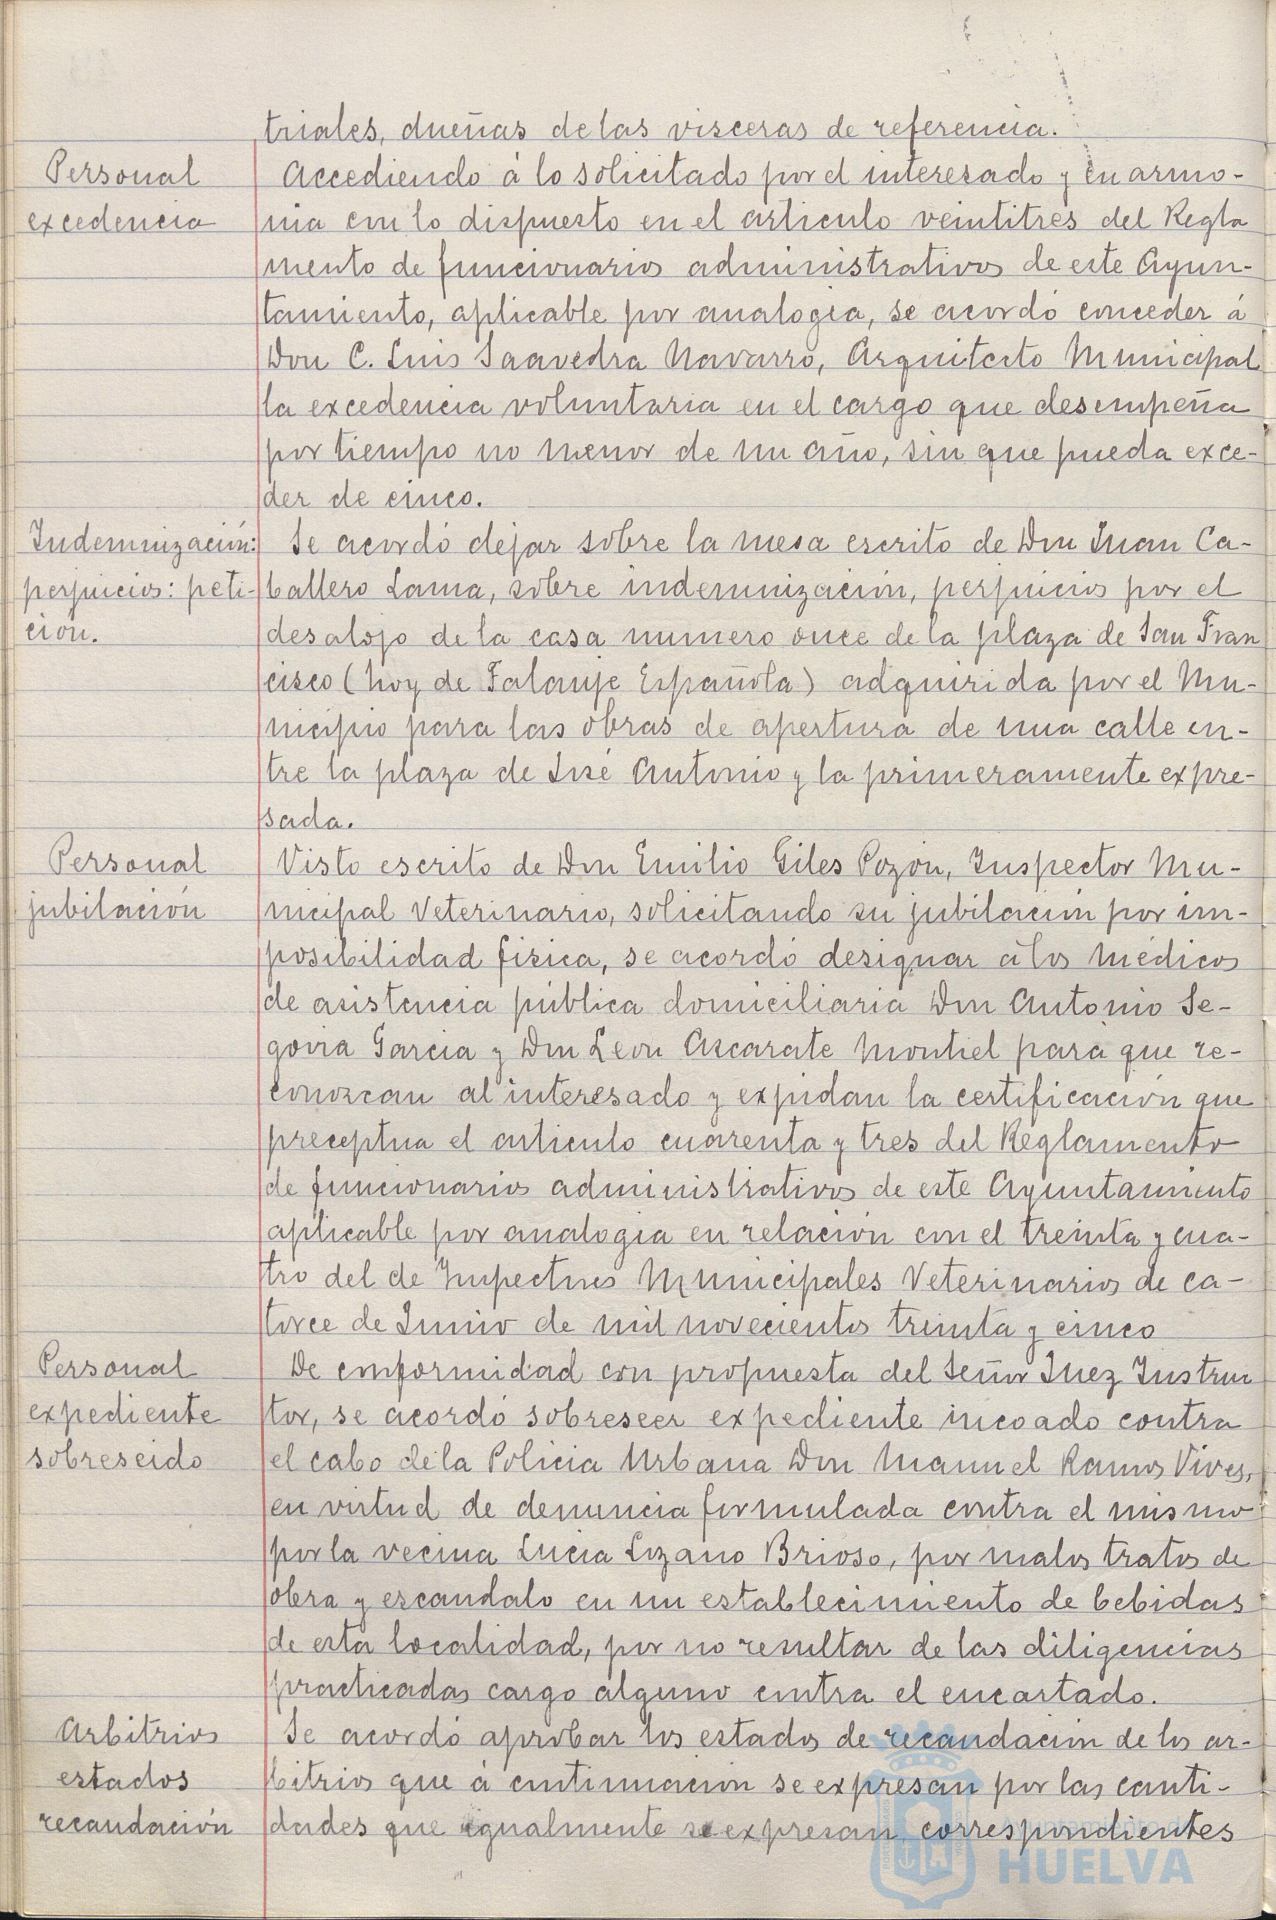 triales, dueñas de las visceras de referencia.
Personal
excedencia
Accediendo á lo solicitado por el interesado y en armo-
nia con lo dispuesto en el articulo veintitres del Regla
mento de funcionarios administrativos de este Ayun-
tamiento, aplicable por analogia, se acordó conceder á
Don C. Luis Saavedra Navarro, Arquitecto Municipal
la excedencia voluntaria en el cargo que desempeña
por tiempo no menor de un año, sin que pueda exce-
der de cinco.
Indemnización:
perjuicios: peti-
ción.
Se acordó dejar sobre la mesa escrito de Don Juan Ca-
ballero Lama, sobre indemnización, perjuicios por el
desalojo de la casa numero once de la plaza de San Fran
cisco (hoy de Falanje Española) adquirida por el Mu-
nicipio para las obras de apertura de una calle en-
tre la plaza de José Antonio y la primeramente expre-
sada.
Personal
jubilación
Visto escrito de Don Emilio Giles Pozón, Inspector Mu-
nicipal Veterinario, solicitando su jubilación por im-
posibilidad fisica, se acordó designar á los médicos
de asistencia pública domiciliaria Don Antonio Se-
govia Garcia y Don Leon Azcarate Montiel para que re-
conozcan al interesado y expidan la certificación que
preceptua el articulo cuarenta y tres del Reglamento
de funcionarios administrativos de este Ayuntamiento
aplicable por analogia en relación con el treinta y cua-
tro del de Inspectores Municipales Veterinarios de ca-
torce de Junio de mil novecientos treinta y cinco
Personal
expediente
sobreseido
De conformidad con propuesta del Señor Juez Instruc
tor, se acordó sobreseer expediente incoado contra
el cabo de la Policia Urbana Don Manuel Ramos Vives,
en virtud de denuncia formulada contra el mismo
por la vecina Lucia Lozano Brioso, por malos tratos de
obra y escandalo en un establecimiento de bebidas
de esta localidad, por no resultar de las diligencias
practicadas cargo alguno contra el encartado.
Arbitrios
estados
recaudación
Se acordó aprobar los estados de recaudación de los ar-
bitrios que á continuación se expresan por las canti-
dades que igualmente se expresan correspondientes
Ayuntamiento de
HUELVA